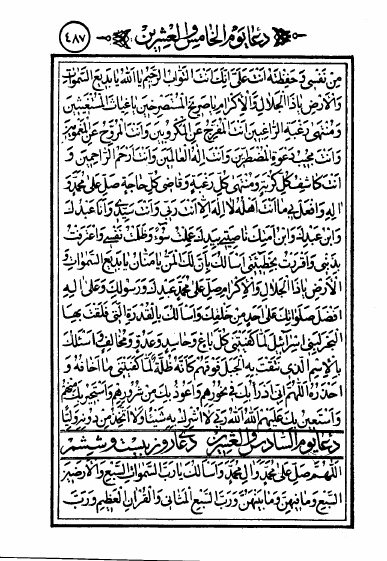 دعاء يوم الخامس والعشرين
٤٨٧
مِن نفسى و حفظته انت علىّ انك انت التّوّاب الرّحيم يا الله يا بديع السّموات
والارض يا ذا الجلال والاكرام يا صريخ المستصرخين يا غياث المستغيثين
و منتهى رغبة الرّاغبين انت المفرّج عن المكروبين وانت المروّح عن المغمومين
وانت مجيب دعوة المضطرّين وانت اله العالمين وانت ارحم الرّاحمين و
انت كاشف كلّ كربة و منتهى كلّ رغبة و قاضى كلّ حاجة صلّ على محمّد و
اله وافعل بى ما انت اهله لا اله الّا انت ربّى وانت سيّدى وانا عبدك
وابن عبدك وابن امتك ناصيتى بيدك عملت سوء و ظلمت نفسى واعترفت
بذنبى واقررت بخطيئتى اسالك بانّ لك المنّ يا منّان يا بديع السّموات و
الارض يا ذا الجلال والاكرام صلّ على محمّد عبدك و رسولك و على اله
افضل صلواتك على احد من خلقك واسالك بالقدرة الّتى فلقت بها
البحر لبنى اسرائيل لمّا كفيتنى كلّ باغ و حاسد و عدوّ و مخالف واسئلك
بالاسم الّذى نتقت به الجبل فوقهم كانّه ظلّة لمّا كفيتنى ما اخافه و
احذره اللّهمّ انّى ادرأ بك فى نحورهم واعوذ بك من شرورهم واستجير بك منهم
واستعين بك عليهم الله الله ربّى لا اشرك به شيئا ولا اتّخذ من دونه وليّا
دعاء يوم السادس والعشرين دعاء روز بيست و ششم
اللّهمّ صلّ على محمّد وال محمّد واسالك يا ربّ السّموات السّبع والارضين
السّبع و ما فيهنّ و ما بينهنّ و ربّ السّبع المثانى والقران العظيم و ربّ